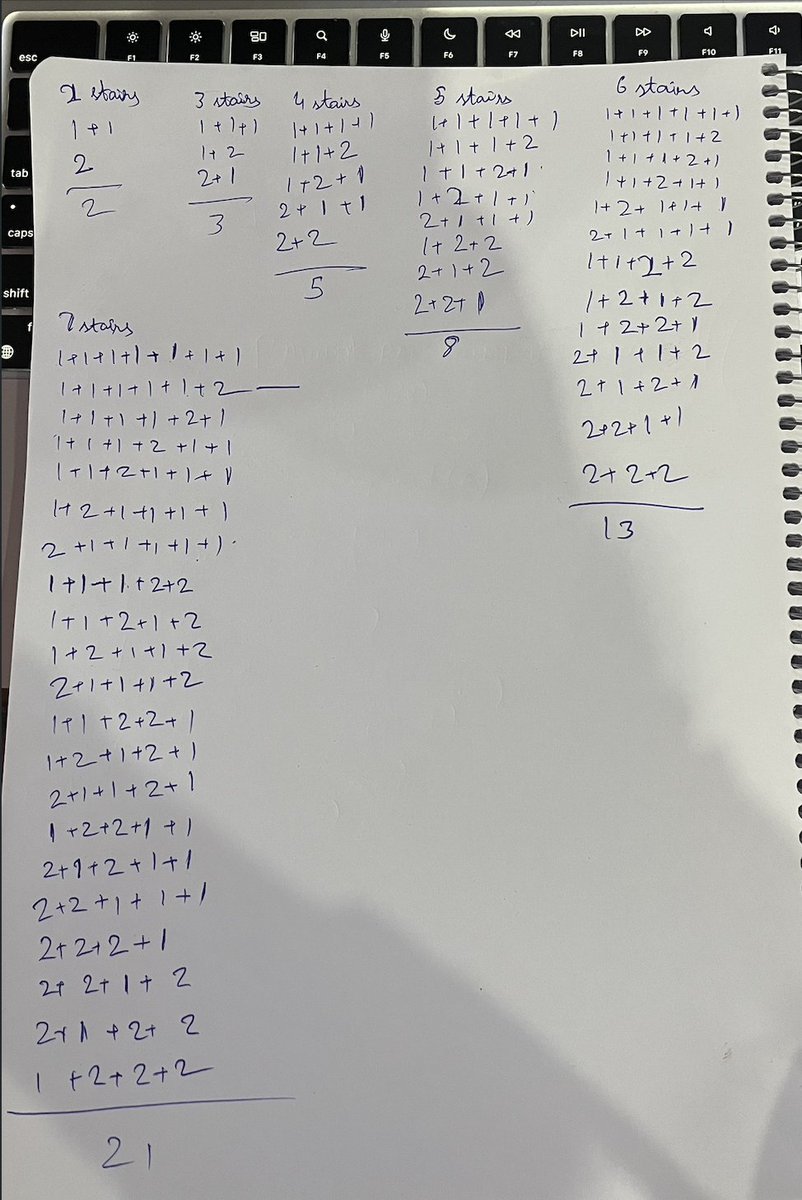 esc
F1
F2
F3
F4
F5
F6
F7
F8
F9
F10
F11
tab
caps
shift
f
2 stairs
1+1
2
2
3 stairs
1+1+1
1+2
2+1
3
4 stairs
1+1+1+1
1+1+2
1+2+1
2+1+1
2+2
5
5 stairs
1+1+1+1+1
1+1+1+2
1+1+2+1
1+2+1+1
2+1+1+1
1+2+2
2+1+2
2+2+1
8
6 stairs
1+1+1+1+1+1
1+1+1+1+2
1+1+1+2+1
1+1+2+1+1
1+2+1+1+1
2+1+1+1+1
1+1+2+2
1+2+1+2
1+2+2+1
2+1+1+2
2+1+2+1
2+2+1+1
2+2+2
13
7 stairs
1+1+1+1+1+1+1
1+1+1+1+1+2
1+1+1+1+2+1
1+1+1+2+1+1
1+1+2+1+1+1
1+2+1+1+1+1
2+1+1+1+1+1
1+1+1+2+2
1+1+2+1+2
1+2+1+1+2
2+1+1+1+2
1+1+2+2+1
1+2+1+2+1
2+1+1+2+1
1+2+2+1+1
2+1+2+1+1
2+2+1+1+1
2+2+2+1
2+2+1+2
2+1+2+2
1+2+2+2
21